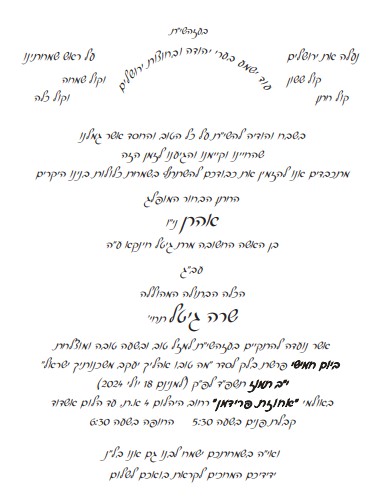 בעזהשי״ת
נעלה את ירושלים על ראש שמחתינו
עוד ישמע בערי יהודה ובחוצות ירושלים
קול ששון וקול שמחה
קול חתן וקול כלה
בשבח והודיה להשי״ת על כל הטוב והחסד אשר גמלנו
שהחיינו וקיימנו והגיענו לזמן הזה
מתכבדים אנו להזמין את כבודכם להשתתף בשמחת כלולות בנינו היקרים
החתן הבחור המופלג
אהרן ני״ו
בן האשה החשובה מרת גיטל חינקא ע״ה
עב״ג
הכלה הבתולה המהוללה
שרה גיטל תחי׳
אשר נועדה להתקיים בעזהשי״ת למזל טוב ובשעה טובה ומוצלחת
ביום חמישי פרשת בלק לסדר ״מה טובו אהליך יעקב משכנותיך ישראל״
י״ב תמוז תשפ״ד לפ״ק (למנינם 18 יולי 2024)
באולמי ״אחוזת פרידמן״ רחוב היהלום 4 א.ת. עד הלום אשדוד
קבלת פנים בשעה 5:30 החופה בשעה 6:30
ואי״ה בשמחתכם ישמח לבנו גם אנו בל״נ
ידידיכם המחכים לקראת בואכם לשלום